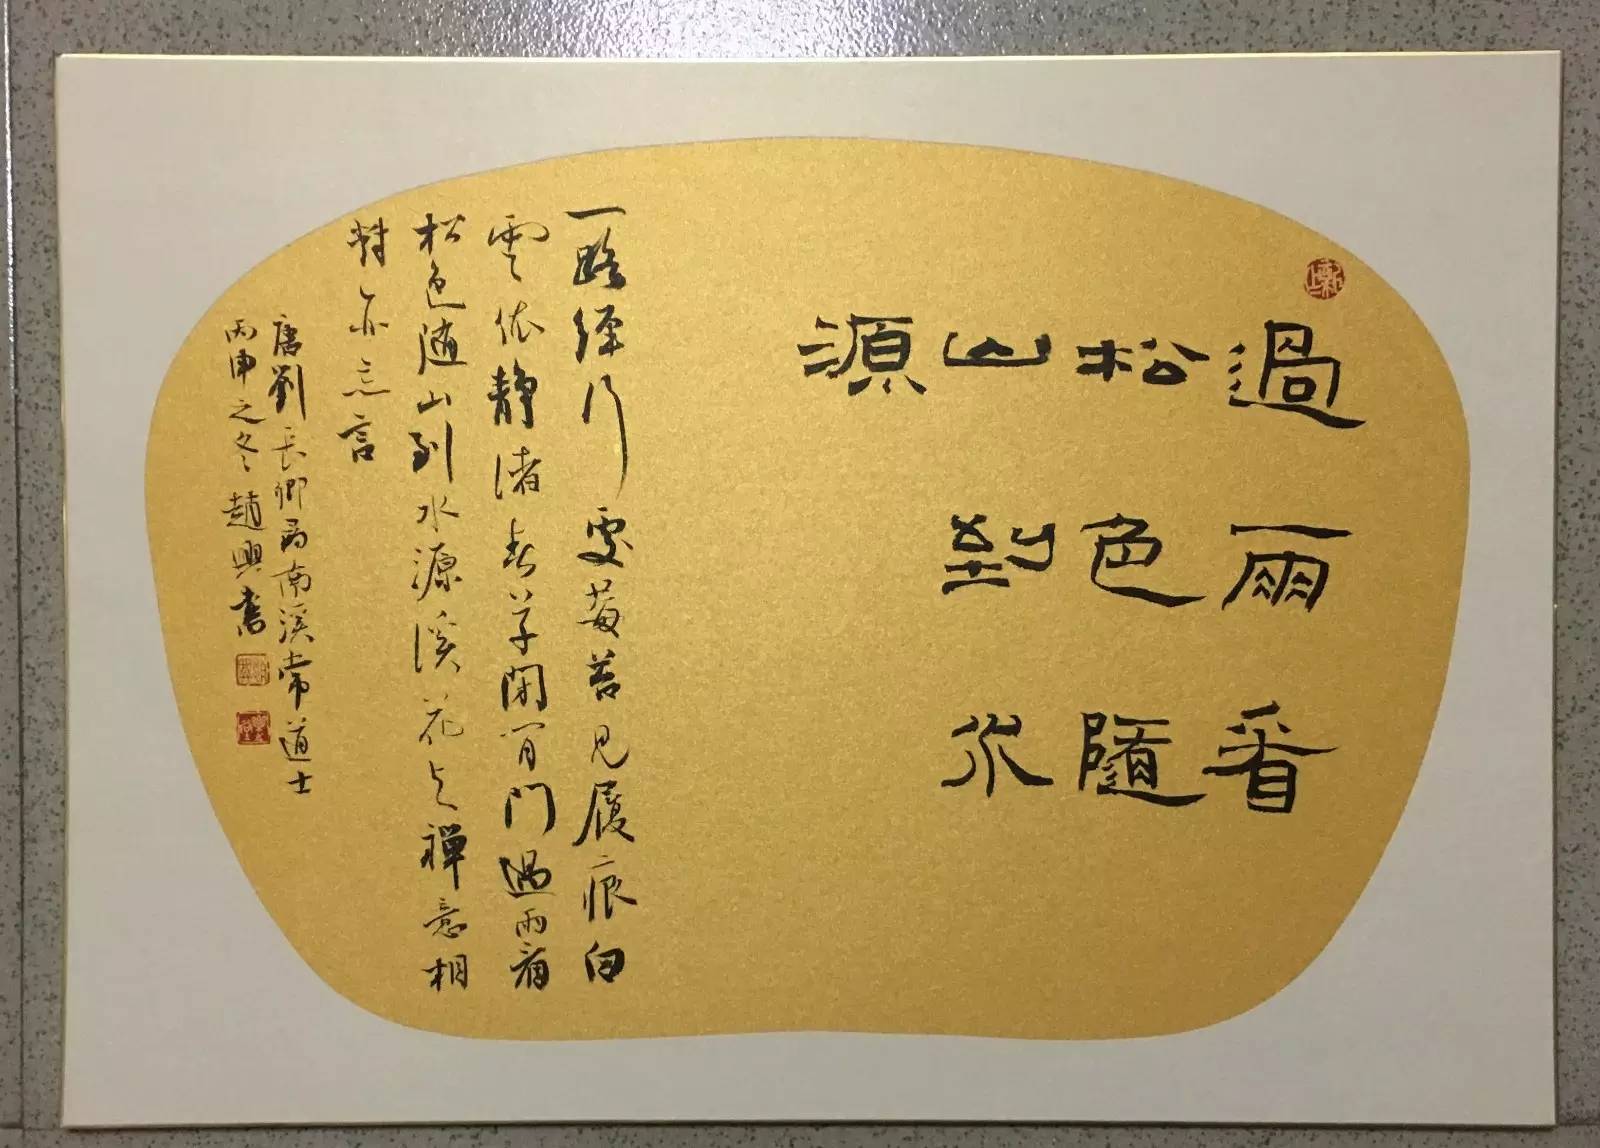 過雨看
松色隨
山到水
源
一路經行處莓苔見履痕白
雲依靜渚春草閉閒門過雨看
松色随山到水源溪花与禪意相
對亦忘言
唐劉長卿尋南溪常道士
丙申之冬趙興書